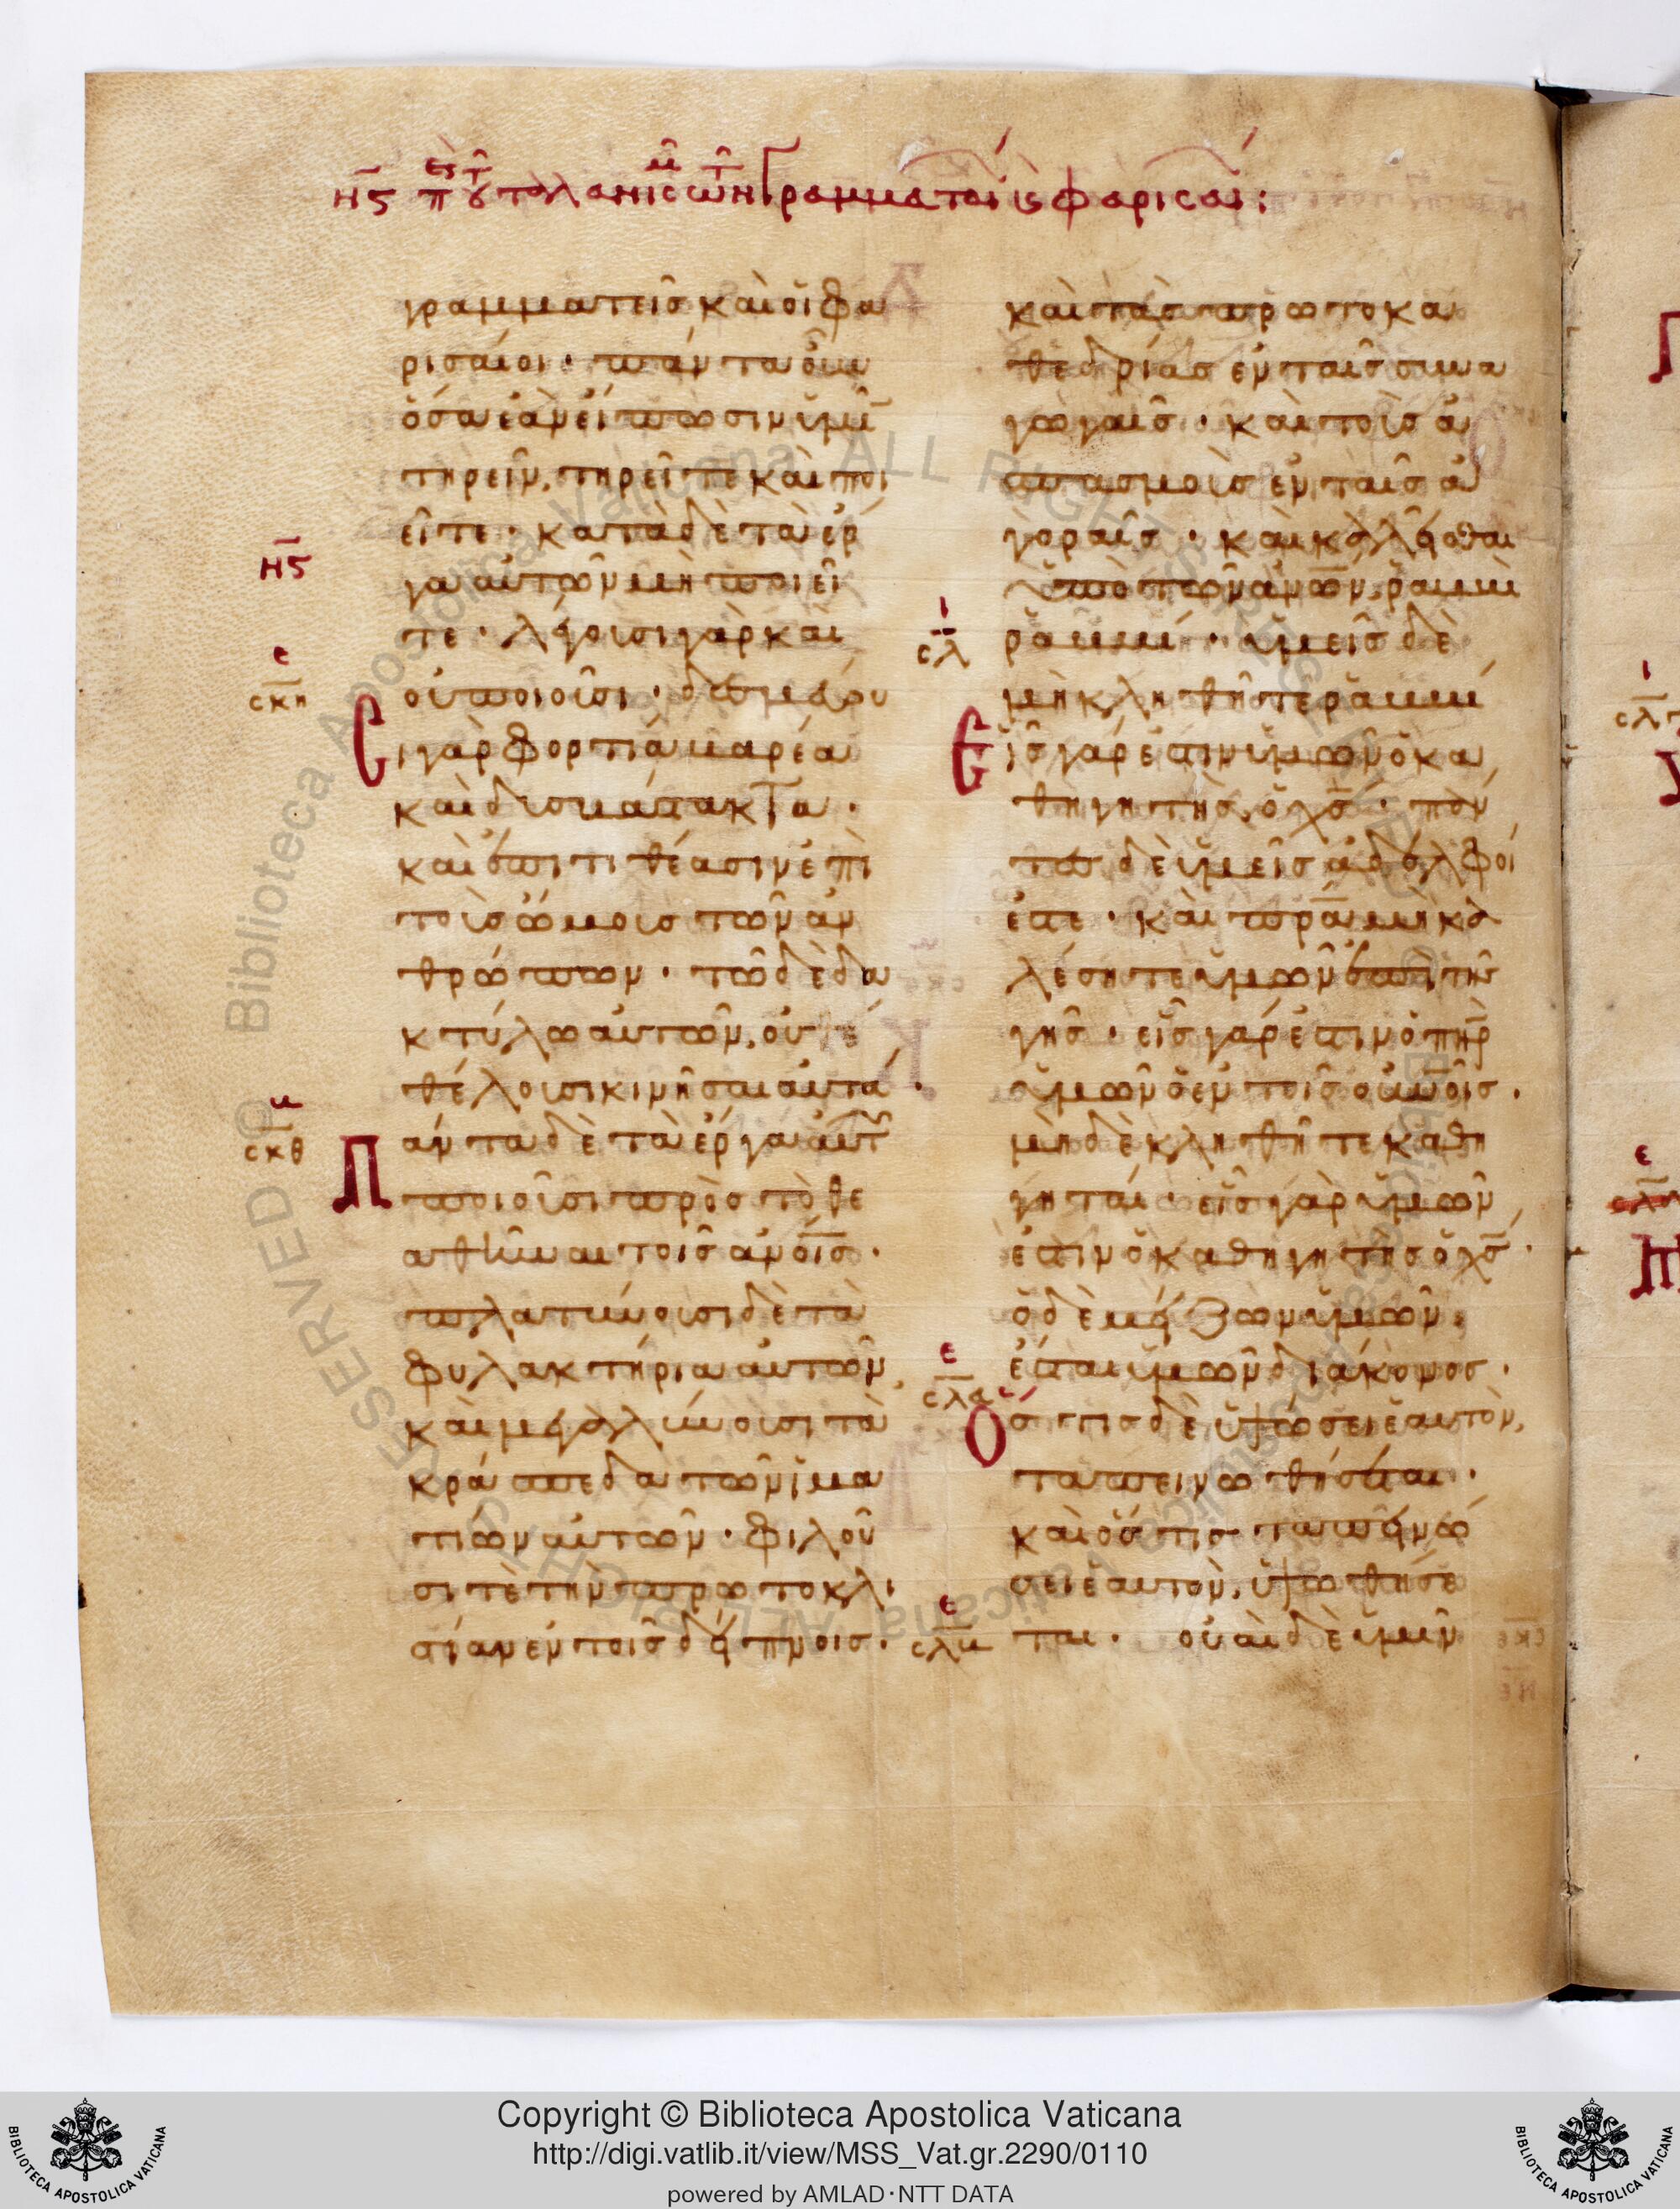 γραμματεῖς καὶ οἱ φα
ρισαίοι· πάντα οὖν
ὅσα ἐὰν εἴπωσιν ὑμῖ̄
τηρεῖν, τηρεῖτε καὶ ποι
εῖτε· κατὰ δὲ τὰ ἔρ
γα αὐτῶν μὴ ποιεῖ
τε· λέγουσι γὰρ καὶ
οὐ ποιοῦσι· δεσμεύου
Σι γὰρ φορτία βαρέα
καὶ δυσβάστακτα·
καὶ ἐπιτιθέασιν ἐπὶ
τοὺς ὤμους τῶν ἀν
θρώπων· τῶ δὲ δα
κτύλω αὐτῶν, οὐ
θέλουσι κινῆσαι αὐτά·
Πάντα δὲ τὰ ἔργα αὐτ
ποιοῦσι πρὸς τὸ θε
αθῆναι τοῖς ἀνοις·
πλατύνουσι δὲ τὰ
φυλακτήρια αὐτῶν,
καὶ μεγαλύνουσι τὰ
κράσπεδα τῶν ἱμα
τίων αὐτῶν· φιλοῦ
σι τὲ τὴν πρωτοκλι
σίαν ἐν τοῖς δείπνοις·
καὶ τὰς πρωτοκα
θεδρίας ἐν ταῖς συνα
γωγαῖς· καὶ τοὺς ἀ
σπασμοὺς ἐν ταῖς ἀ
γοραῖς· καὶ καλεῖσθαι
ὑπὸ τῶν ἀνων, ῥαββὶ
ῥαββί· ὑμεῖς δὲ
μὴ κληθῆτε ῥαββί
Εἷς γάρ ἐστιν ὑμῶν ὁ κα
θηγητὴς, ὁ χς· πάν
τες δὲ ὑμεῖς ἀδελφοί
ἐστε· καὶ πρα μὴ κα
λέσητε ὑμῶν ἐπὶ τῆς
γῆς· εἷς γάρ ἐστιν ὁ πηρ
ὑμῶν ὁ ἐν τοῖς οὐνοῖς·
μὴ δὲ κληθῆτε καθη
γηταί· εἷς γὰρ ὑμῶν
ἐστιν ὁ καθηγητής ὁ χς·
ὁ δὲ μείζων ὑμῶν,
ἔσται ὑμῶν διάκονος·
Οστις δὲ ὑψώσει ἑαυτὸν,
ταπεινωθήσεται·
καὶ ὅστις ταπεινώ
σει ἑαυτὸν, ὑψωθήσε
ται· οὐαὶ δὲ ὑμῖν
ης
ε
σκη
ε
σκθ
ι
σλ
ε
σλα
ε
σλβ
Copyright © Biblioteca Apostolica Vaticana
http://digi.vatlib.it/view/MSS_Vat.gr.2290/0110
powered by AMLAD·NTT DATA
BIBLIOTECA APOSTOLICA VATICANA
BIBLIOTECA APOSTOLICA VATICANA